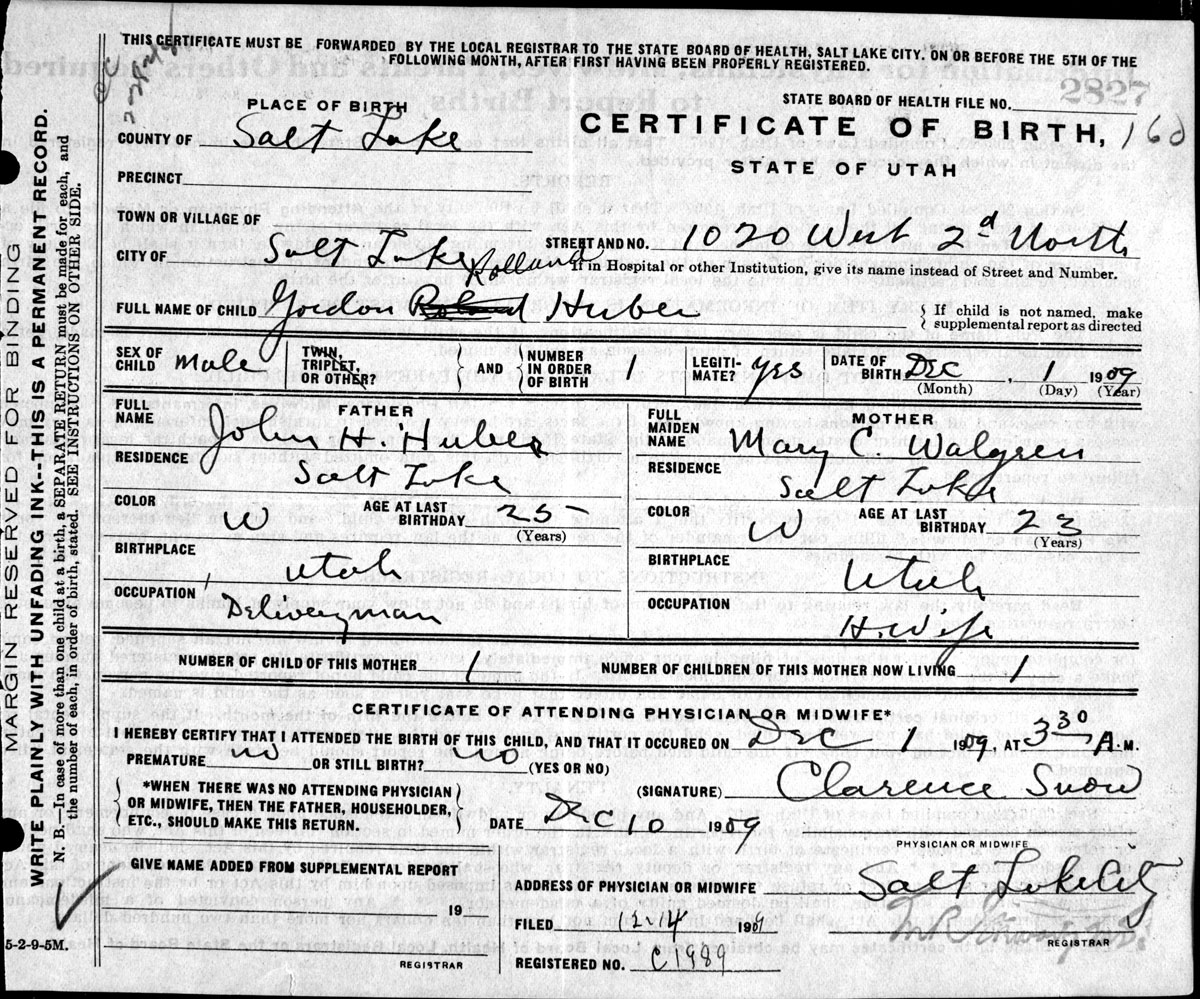 THIS CERTIFICATE MUST BE FORWARDED BY THE LOCAL REGISTRAR TO THE STATE BOARD OF HEALTH, SALT LAKE CITY, ON OR BEFORE THE 5TH OF THE
FOLLOWING MONTH, AFTER FIRST HAVING BEEN PROPERLY REGISTERED.
2827
STATE BOARD OF HEALTH FILE NO.
PLACE OF BIRTH
CERTIFICATE OF BIRTH, 160
COUNTY OF Salt Lake
STATE OF UTAH
PRECINCT
TOWN OR VILLAGE OF
CITY OF Salt Lake STREET AND NO. 1020 West 2d North
If in Hospital or other Institution, give its name instead of Street and Number.
Rolland
FULL NAME OF CHILD Gordon Roland Huber
{ If child is not named, make
supplemental report as directed
SEX OF CHILD Male TWIN, TRIPLET, OR OTHER? AND NUMBER IN ORDER OF BIRTH 1 LEGITI-MATE? Yes DATE OF BIRTH Dec, 1 1909
(Month) (Day) (Year)
FATHER
FULL NAME John H. Huber
RESIDENCE Salt Lake
COLOR W AGE AT LAST BIRTHDAY 25
(Years)
BIRTHPLACE Utah
OCCUPATION Deliveryman
MOTHER
FULL MAIDEN NAME Mary E Walgren
RESIDENCE Salt Lake
COLOR W AGE AT LAST BIRTHDAY 23
(Years)
BIRTHPLACE Utah
OCCUPATION H. Wife
NUMBER OF CHILD OF THIS MOTHER 1 NUMBER OF CHILDREN OF THIS MOTHER NOW LIVING 1
CERTIFICATE OF ATTENDING PHYSICIAN OR MIDWIFE*
I HEREBY CERTIFY THAT I ATTENDED THE BIRTH OF THIS CHILD, AND THAT IT OCCURED ON Dec 1 1909, AT 3 30 A.M.
PREMATURE no OR STILL BIRTH? no (YES OR NO)
*WHEN THERE WAS NO ATTENDING PHYSICIAN
OR MIDWIFE, THEN THE FATHER, HOUSEHOLDER,
ETC., SHOULD MAKE THIS RETURN.
(SIGNATURE) Clarence Snow
DATE Dec 1909
PHYSICIAN OR MIDWIFE
GIVE NAME ADDED FROM SUPPLEMENTAL REPORT
ADDRESS OF PHYSICIAN OR MIDWIFE Salt Lake City
19
FILED 12-14 1909
REGISTRAR
REGISTRAR
REGISTERED NO. C1989
5-2-9-5M.
MARGIN RESERVED FOR BINDING
WRITE PLAINLY WITH UNFADING INK--THIS IS A PERMANENT RECORD.
N. B.—In case of more than one child at a birth, a SEPARATE RETURN must be made for each, and
the number of each, in order of birth, stated. SEE INSTRUCTIONS ON OTHER SIDE.